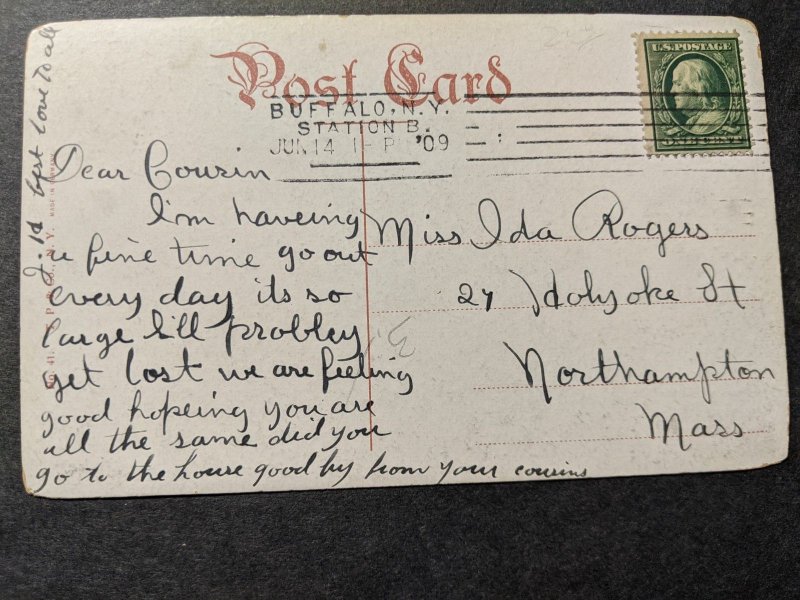 Post Card
U.S. POSTAGE
BUFFALO, N.Y.
STATION B.
JUN 14 '09
Dear Cousin
I'm haveing
a fine time go out
every day its so
large I'll probley
get lost we are feeling
good hopeing you are
all the same did you
go to the house good by from your cousins
love to all
Miss Ida Rogers
27 Holyoke St
Northampton
Mass